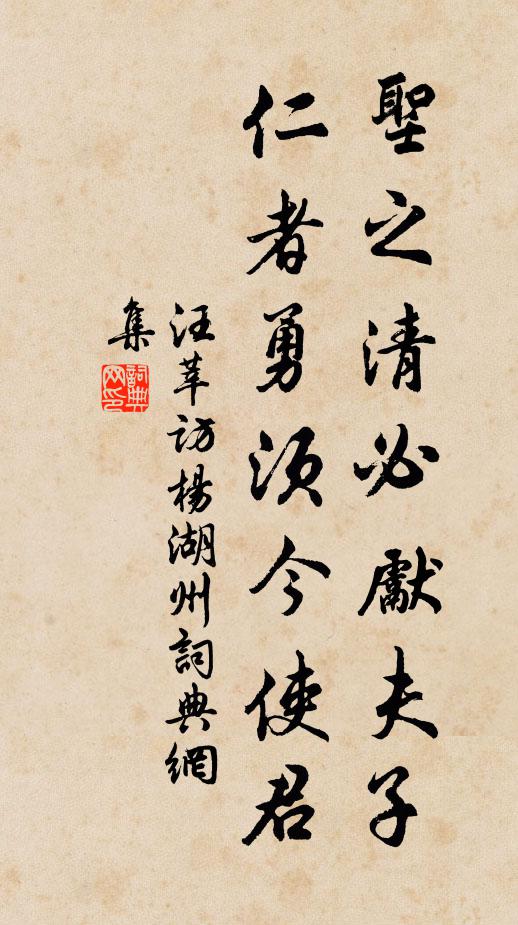 聖之清必獻夫子
仁者勇須今使君
汪莘訪楊湖州詞典網
集
詞典網印